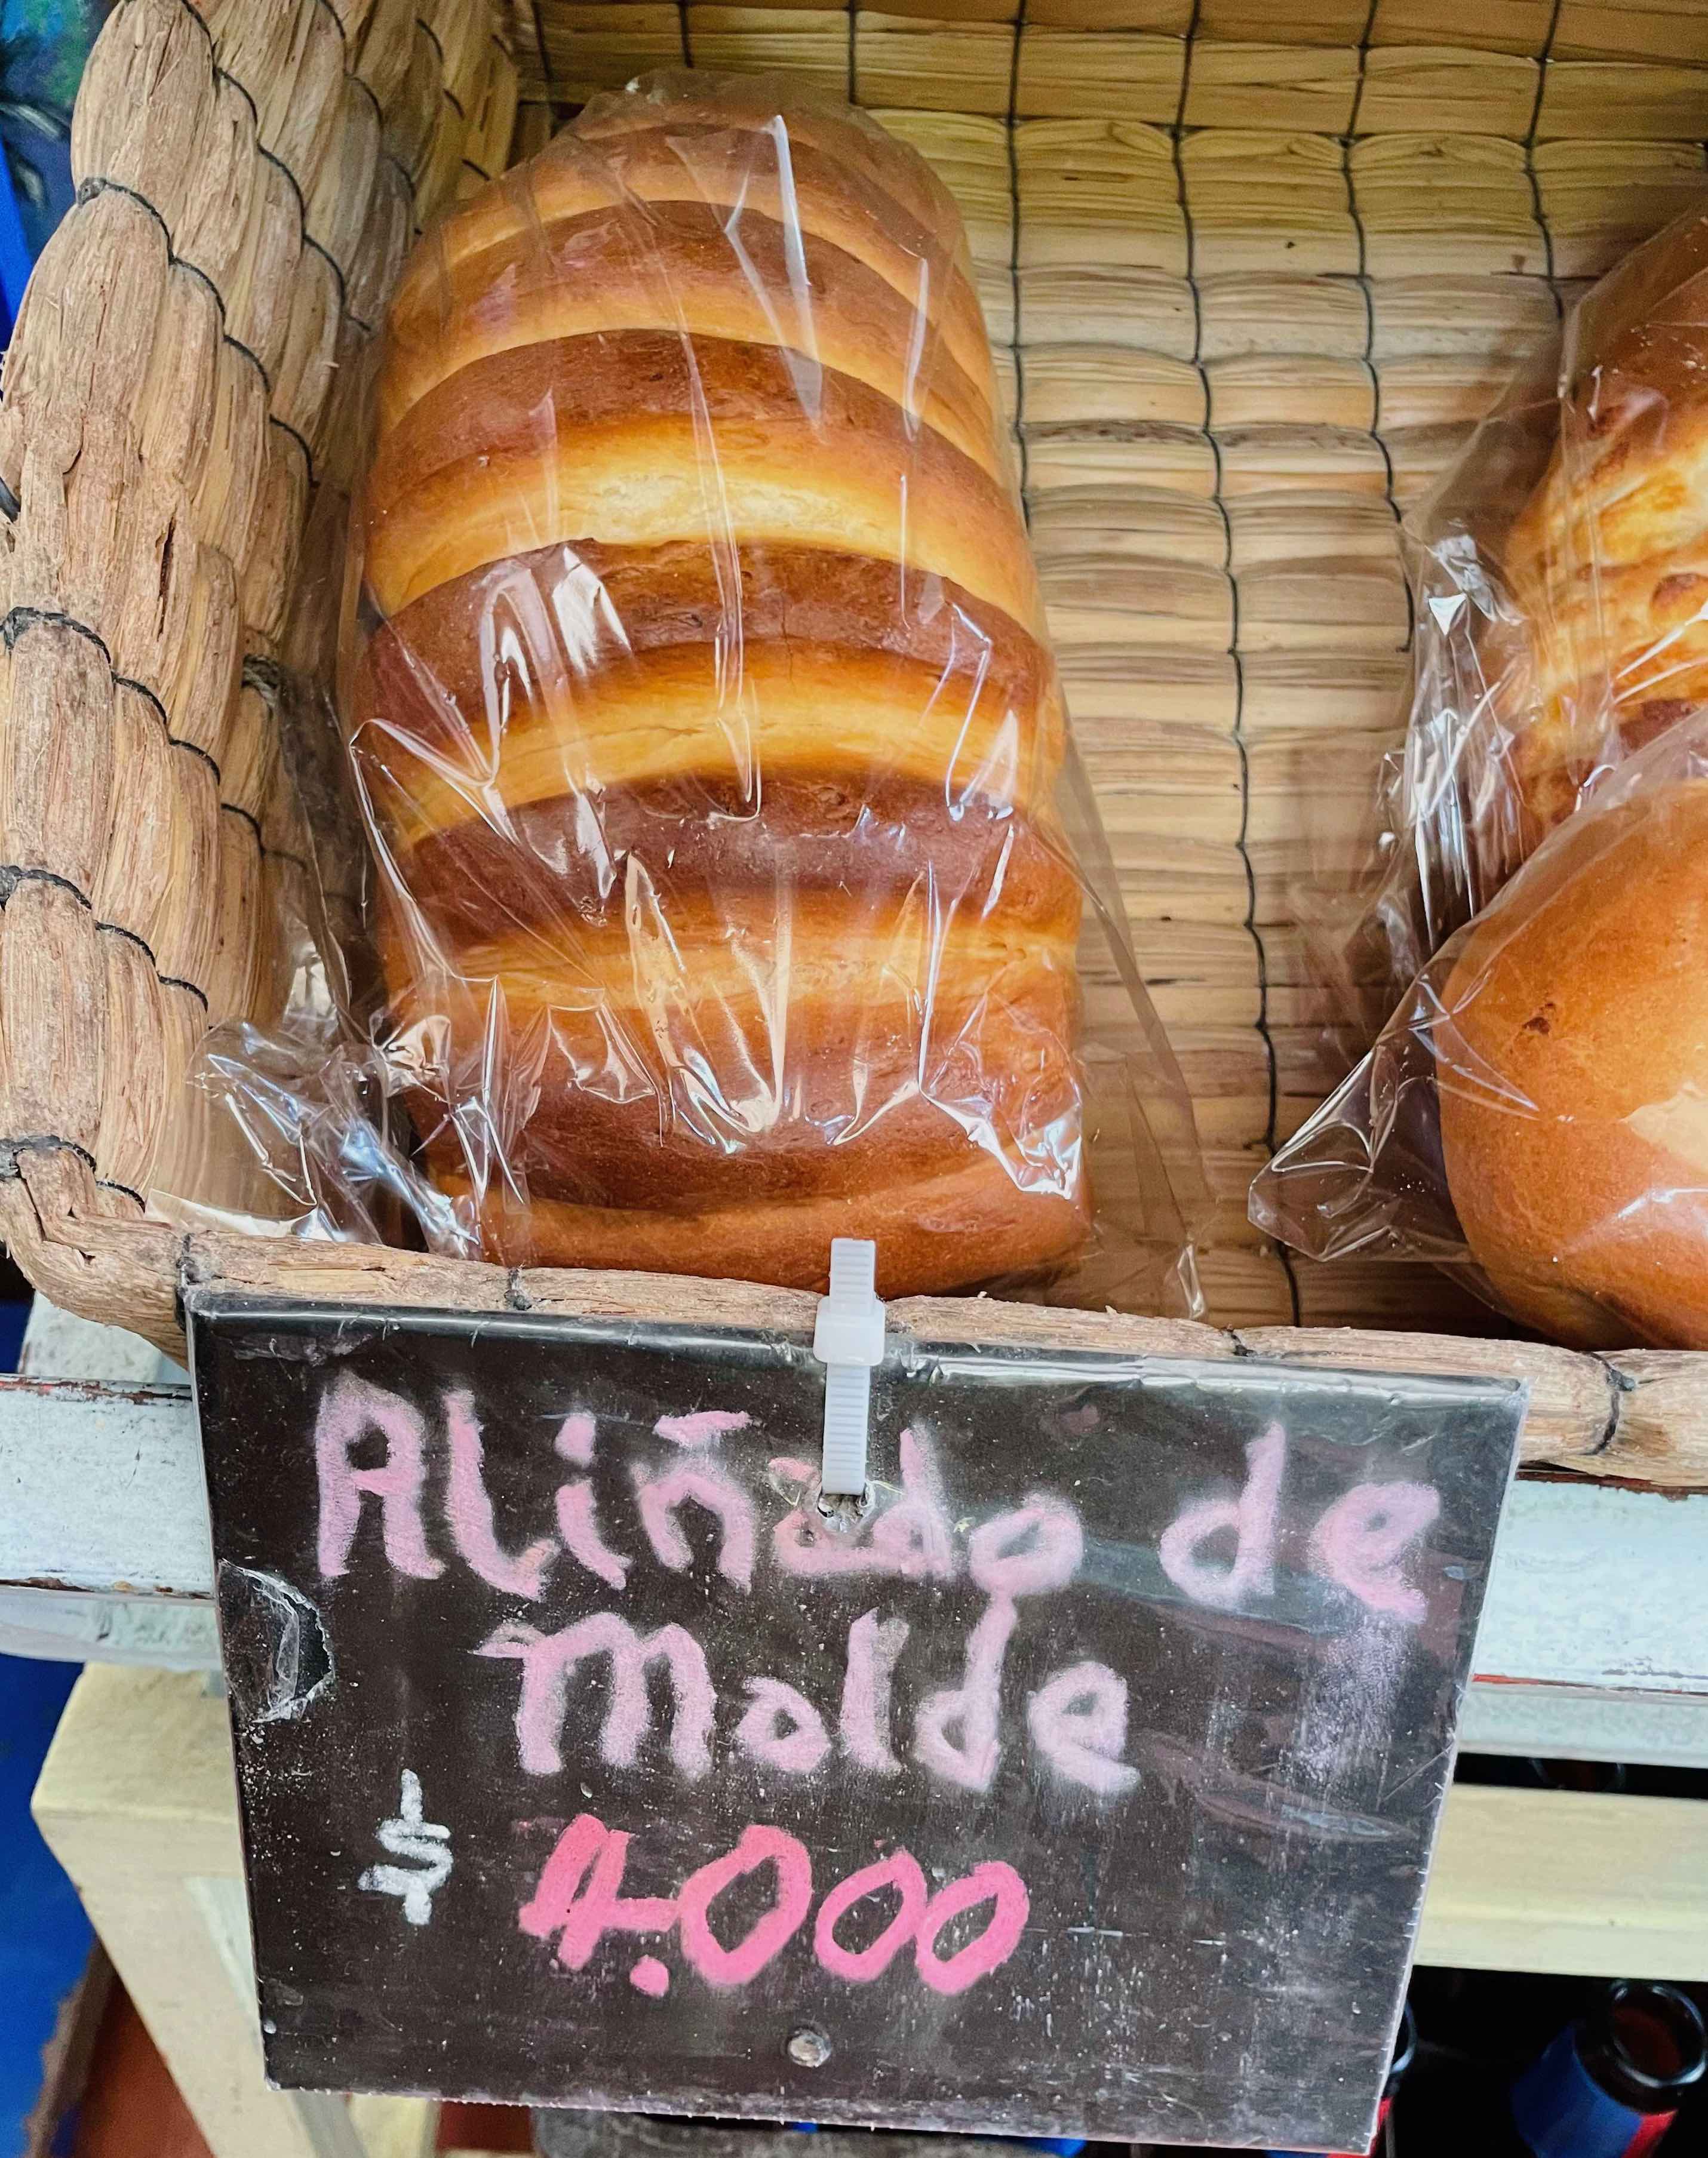 Aliñado de
Molde
$ 4.000